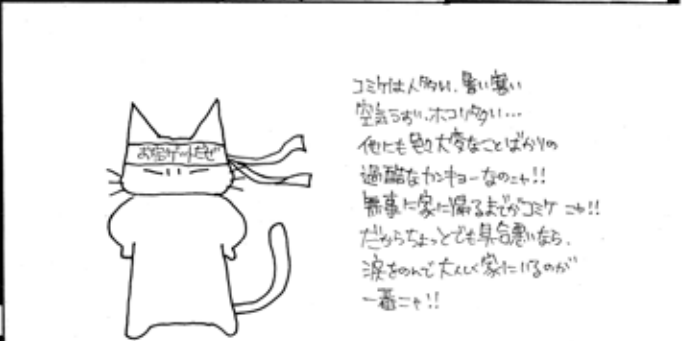 お宝ゲットだぜ
コミケは人多い、暑い寒い
空気うすい、ホコリ多い…
他にも色々大変なことばかりの
過酷なカンキョーなのニャ!!
無事に家に帰るまでがコミケ ニャ!!
だからちょっとでも具合悪いなら、
涙をのんで大人しく家にいるのが
一番ニャ!!